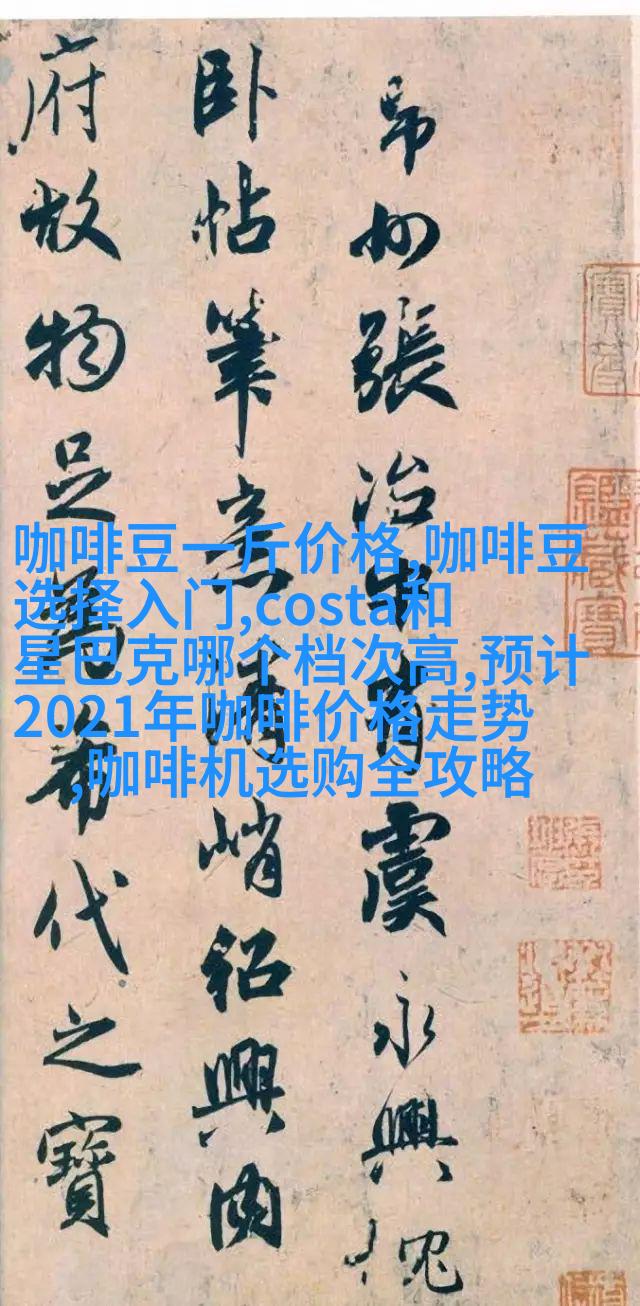 州張冶生有虞永興枕
卧帖筆意清峭紹興内
府故物足為希代之寶
咖啡豆一斤价格,咖啡豆
选择入门,costa和
星巴克哪个档次高,预计
2021年咖啡价格走势
,咖啡机选购全攻略